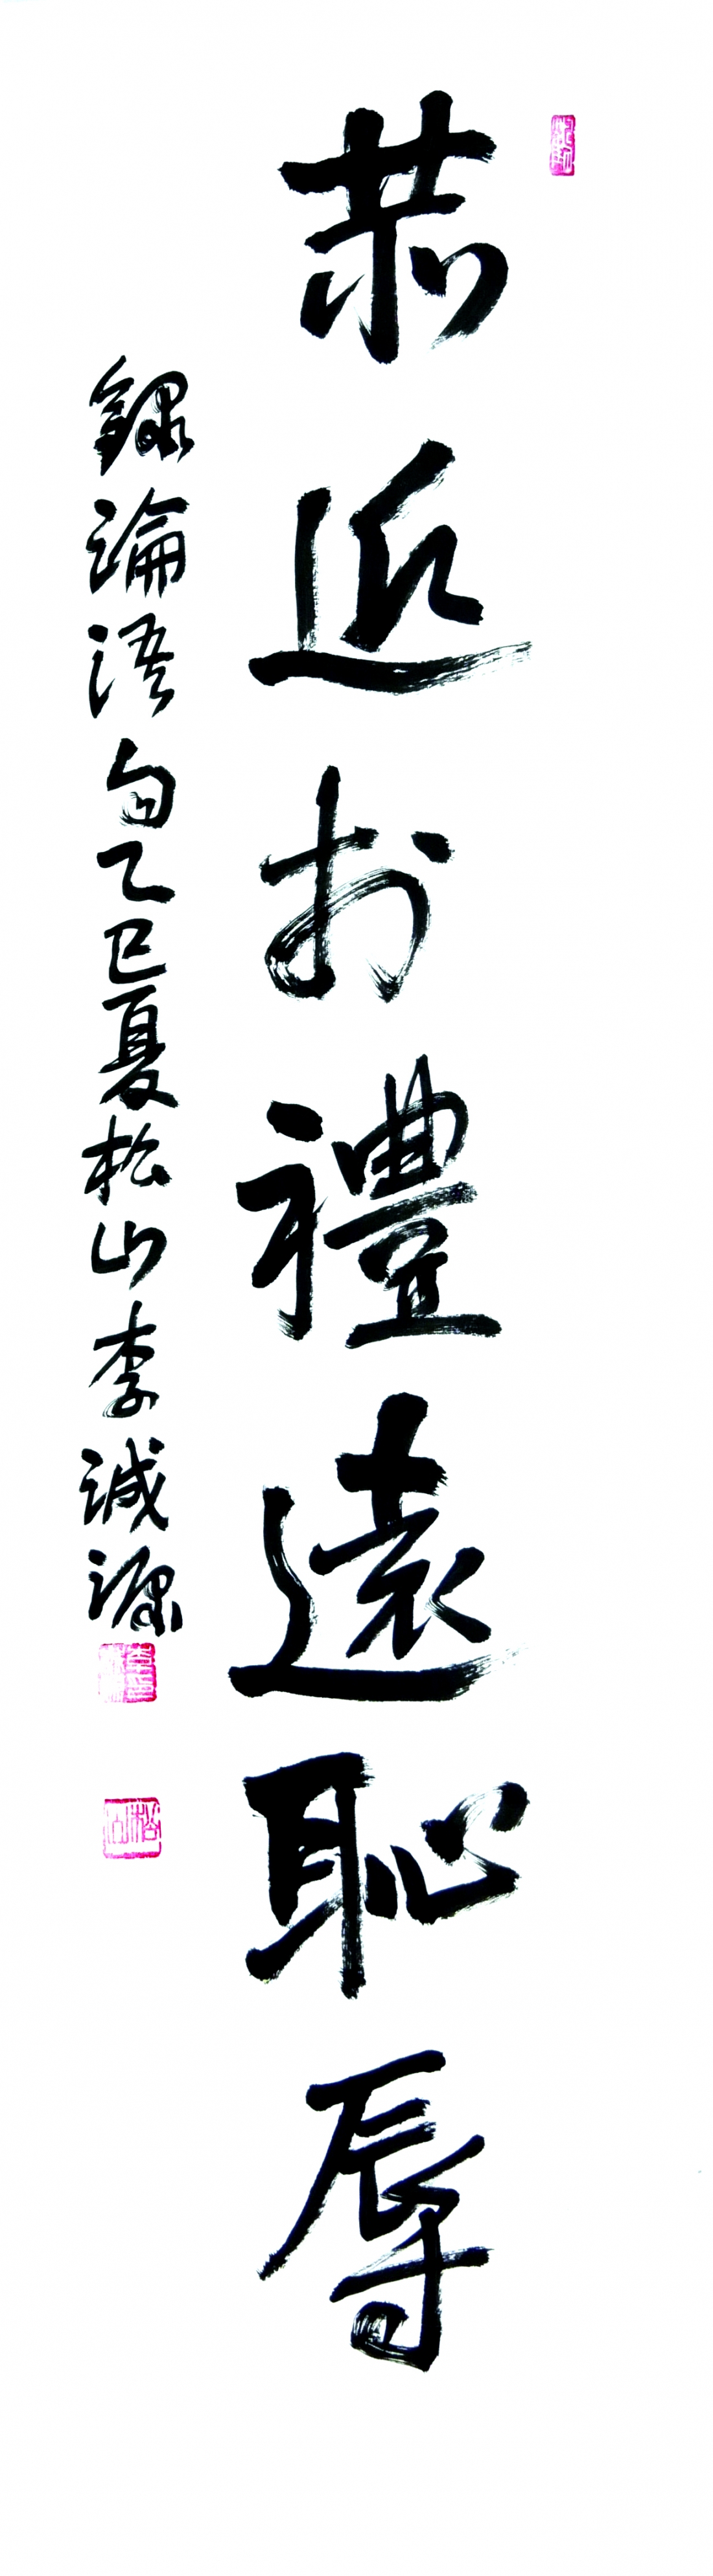 恭近於禮遠恥辱
錄論語句乙巳夏松山李誠源
松山